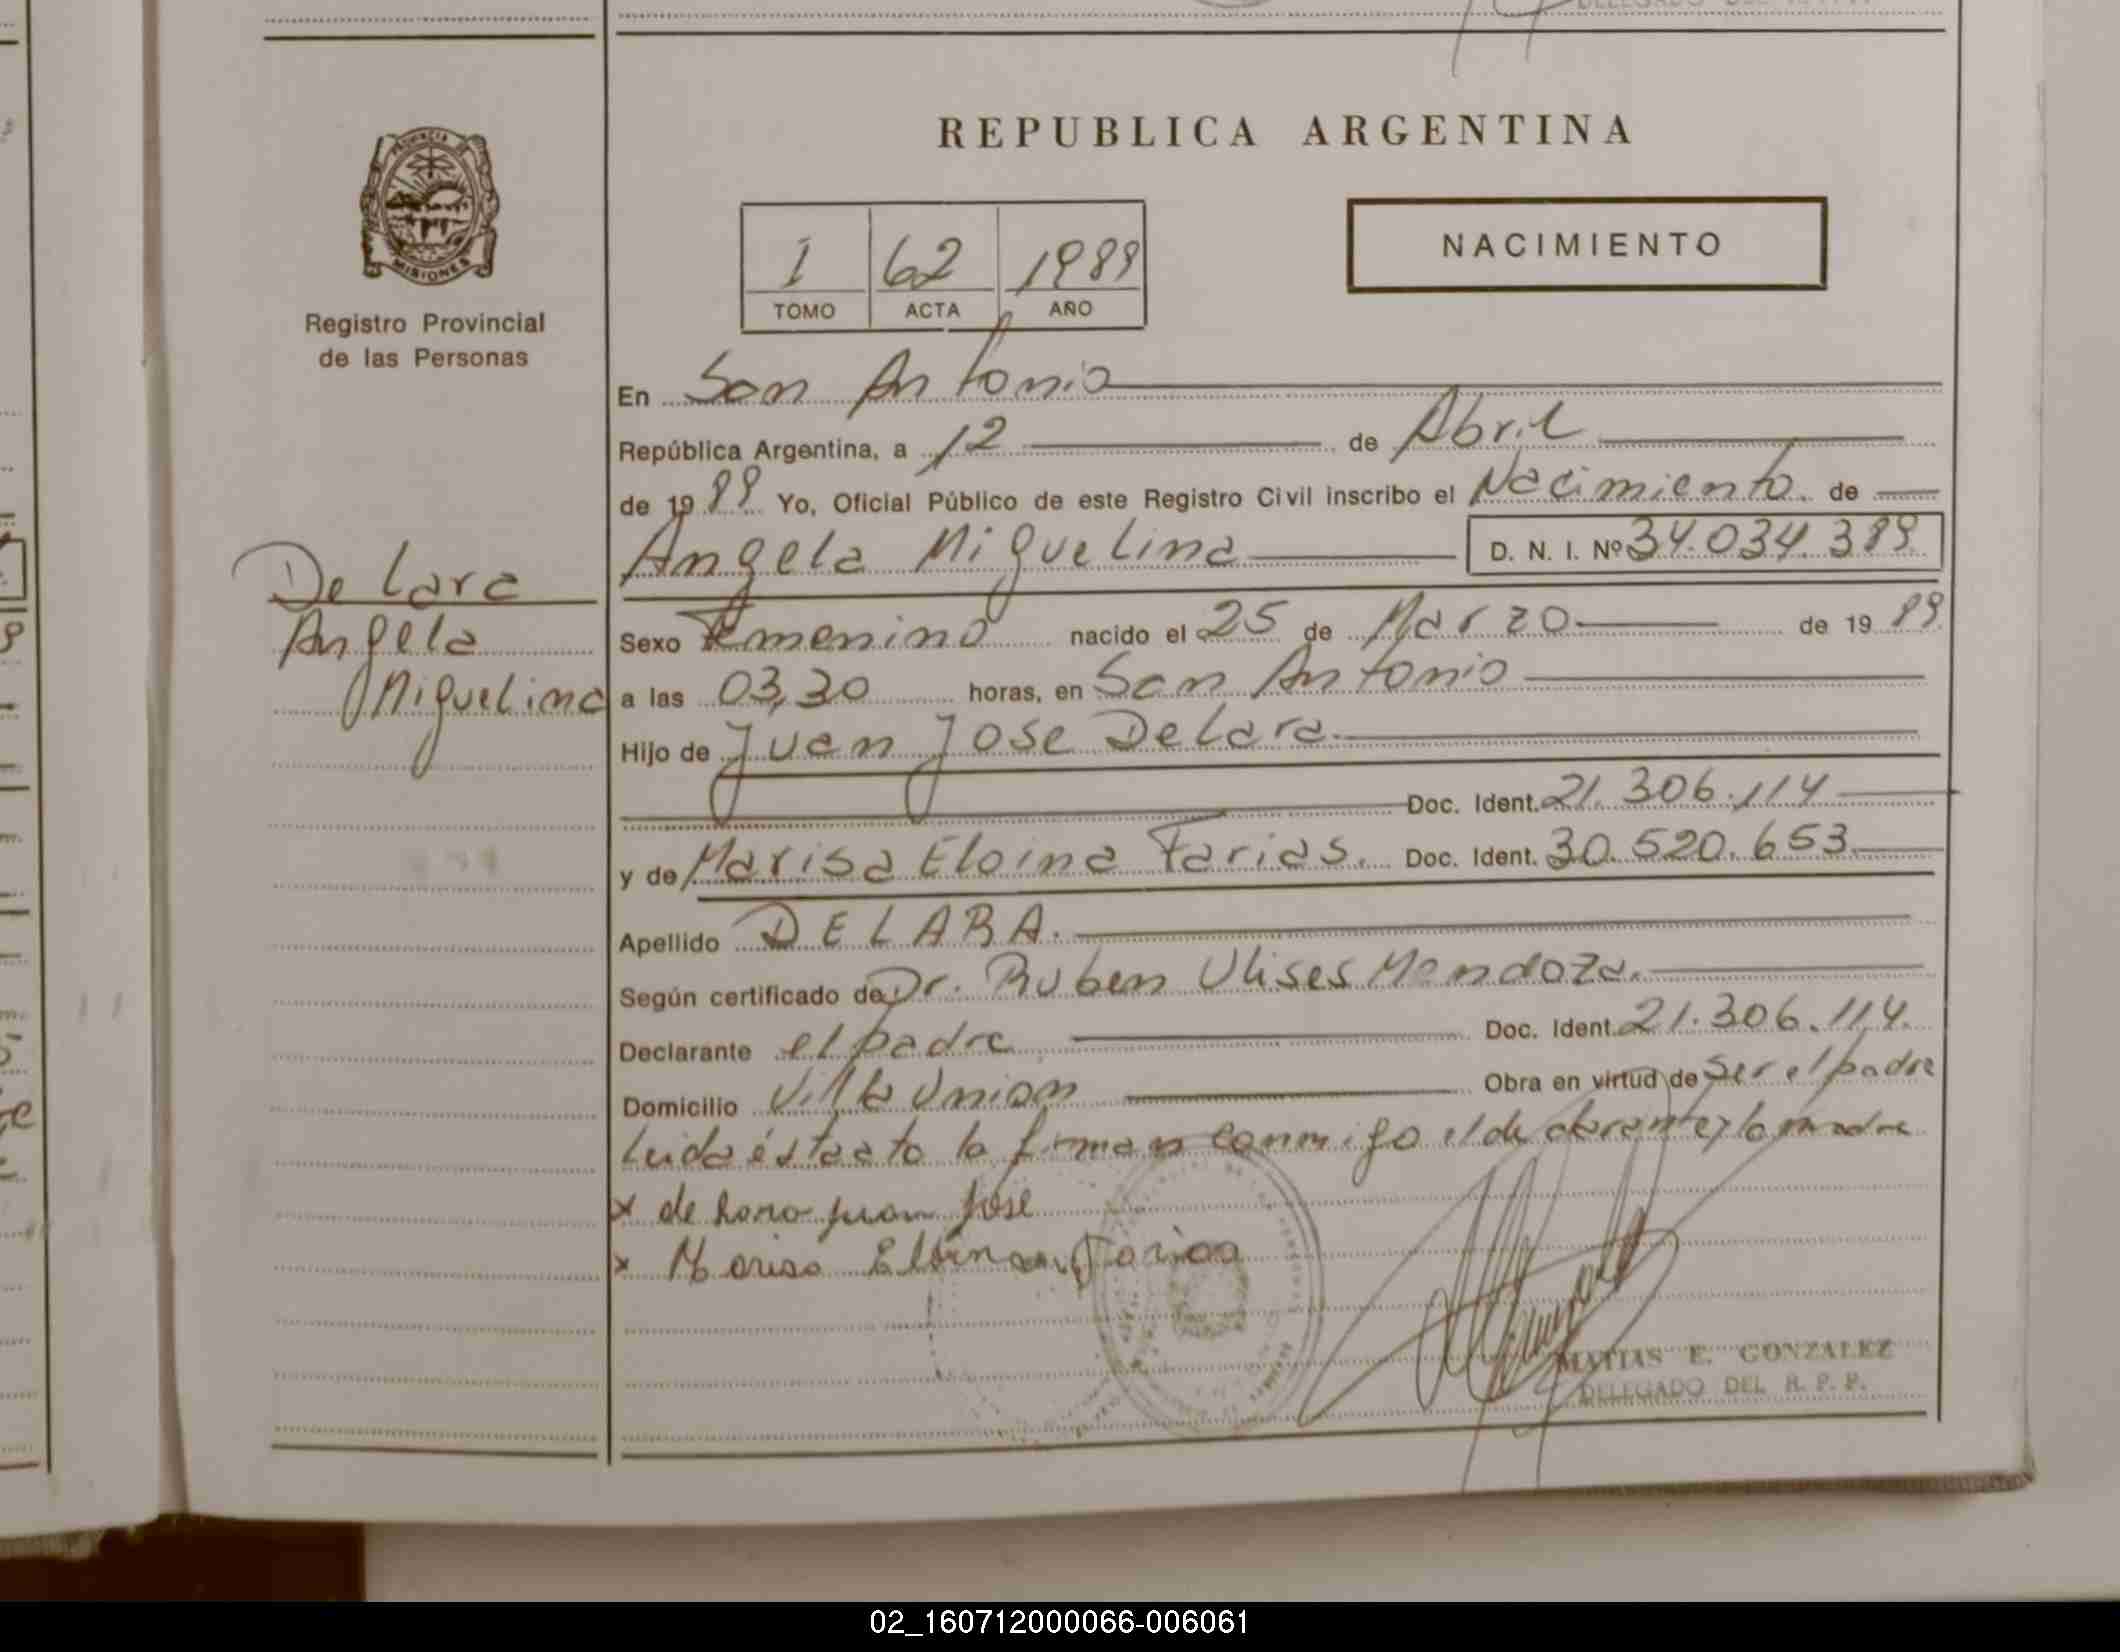 REPUBLICA ARGENTINA
PROVINCIA DE
MISIONES
Registro Provincial
de las Personas
1 62 1989
TOMO ACTA AÑO
NACIMIENTO
En San Antonio
República Argentina, a 12 de Abril
de 1989 Yo, Oficial Público de este Registro Civil inscribo el Nacimiento de
Angela Miguelina D. N. I. Nº 34.034.389
De Lara
Angela
Miguelina
Sexo Femenino nacido el 25 de Marzo de 1989
a las 03,30 horas, en San Antonio
Hijo de Juan Jose De Lara
Doc. Ident. 21.306.114
y de Marisa Eloina Farias. Doc. Ident. 30.520.653
Apellido DE LARA.
Según certificado de Dr. Ruben Ulises Mendoza.
Declarante el padre Doc. Ident. 21.306.114.
Domicilio Villa Union Obra en virtud de ser el padre
Leida ésta acto la firman conmigo el declarante y la madre
x de Lara juan jose
x Marisa Eloina Farias
MATIAS E. GONZALEZ
DELEGADO DEL R. P. P.
02_160712000066-006061